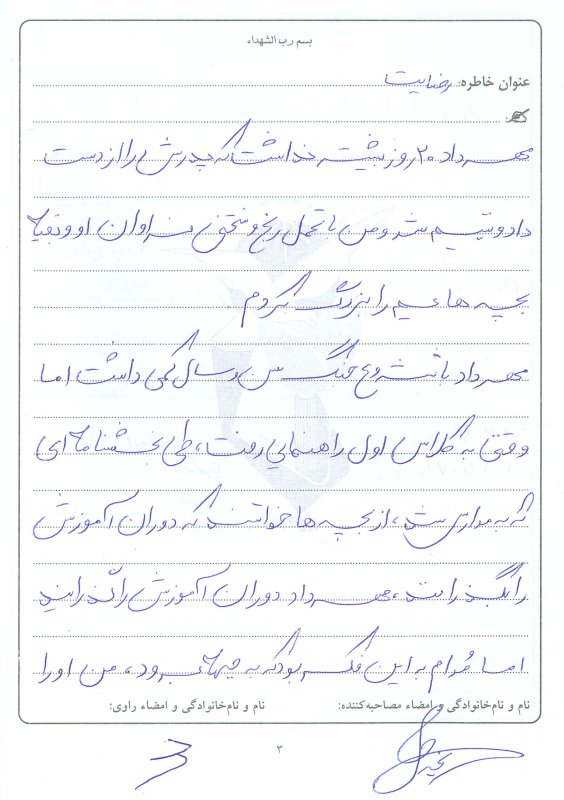 بسم رب الشهداء
عنوان خاطره: رضایت
مهرداد ۲۰ روز بیشتر نداشت که پدرش را از دست
داد و یتیم شد و من با تحمل رنج و سختی فراوان او و بقیه
بچه هایم را بزرگ کردم
مهرداد با شروع جنگ سن و سال کمی داشت اما
وقتی به کلاس اول راهنمایی رفت، طی بخشنامه ای
که به مدارس شد، از بچه ها خواستند که دوران آموزش
را بگذرانند، مهرداد دوران آموزش را گذرانید
اما مُدام به این فکر بود که به جبهه برود، من او را
نام و نام‌خانوادگی و امضاء مصاحبه‌کننده:
نام و نام‌خانوادگی و امضاء راوی:
۳